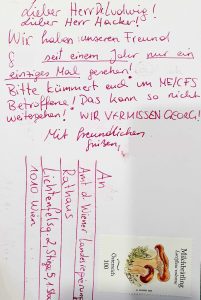 Lieber Herr Dr. Ludwig!
Lieber Herr Hacker!
Wir haben unseren Freund
G seit einem Jahr nur ein
einziges Mal gesehen!
Bitte kümmert euch um ME/CFS
Betroffene! Das kann so nicht
weitergehen! WIR VERMISSEN GEORG!
Mit freundlichen
Grüßen,
An
Amt d. Wiener Landesregierung
Rathaus
Lichtenfelsg. 2, Stiege 5, 1. Stock
1010 Wien
Milchbrätling
Österreich
100